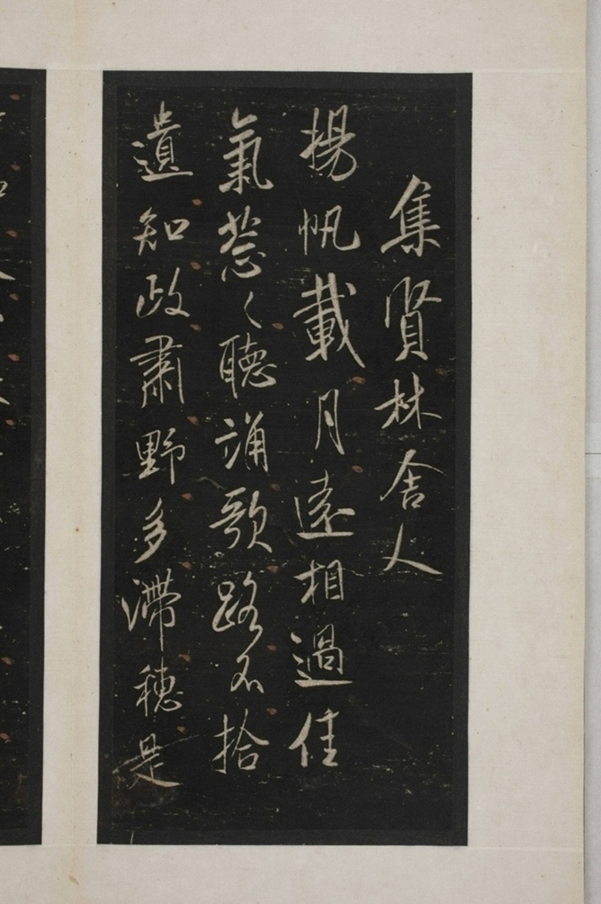 集賢林舍人
揚帆載月遠相過佳
氣葱〻聽誦歌路不拾
遺知政肅野多滯穗是